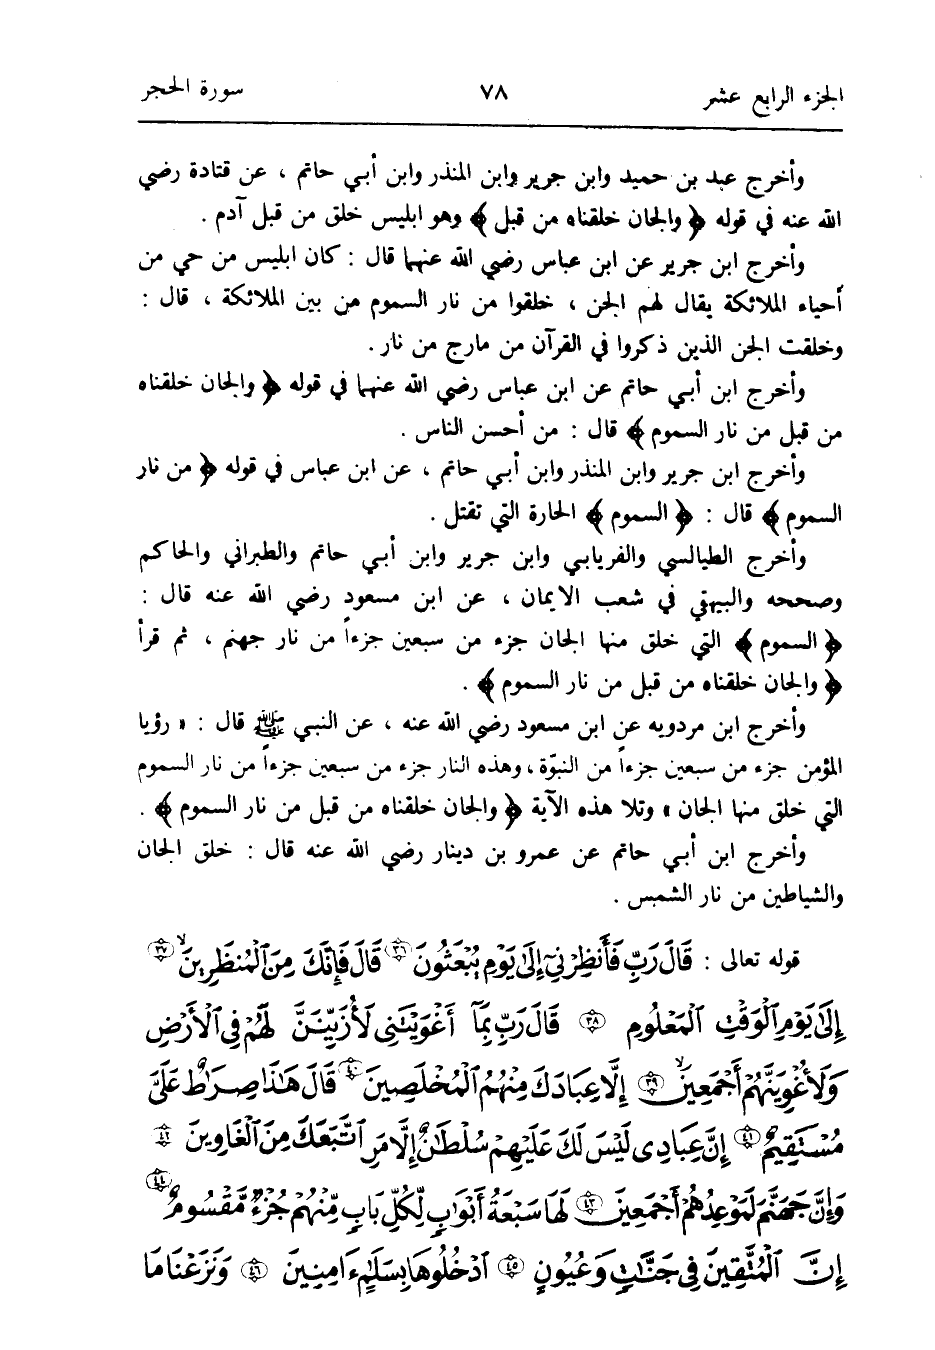 الجزء الرابع عشر ٧٨ سورة الحجر
وأخرج عبد بن حميد وابن جرير وابن المنذر وابن أبي حاتم ، عن قتادة رضي
الله عنه في قوله ﴿ والجان خلقناه من قبل ﴾ وهو ابليس خلق من قبل آدم .
وأخرج ابن جرير عن ابن عباس رضي الله عنهما قال : كان ابليس من حي من
أحياء الملائكة يقال لهم الجن ، خلقوا من نار السموم من بين الملائكة ، قال :
وخلقت الجن الذين ذكروا في القرآن من مارج من نار .
وأخرج ابن أبي حاتم عن ابن عباس رضي الله عنهما في قوله ﴿ والجان خلقناه
من قبل من نار السموم ﴾ قال : من أحسن الناس .
وأخرج ابن جرير وابن المنذر وابن أبي حاتم ، عن ابن عباس في قوله ﴿ من نار
السموم ﴾ قال : ﴿ السموم ﴾ الحارة التي تقتل .
وأخرج الطيالسي والفريابي وابن جرير وابن أبي حاتم والطبراني والحاكم
وصححه والبيهقي في شعب الايمان ، عن ابن مسعود رضي الله عنه قال :
﴿ السموم ﴾ التي خلق منها الجان جزء من سبعين جزءاً من نار جهنم ، ثم قرأ
﴿ والجان خلقناه من قبل من نار السموم ﴾ .
وأخرج ابن مردويه عن ابن مسعود رضي الله عنه ، عن النبي ﷺ قال : « رؤيا
المؤمن جزء من سبعين جزءاً من النبوّة ، وهذه النار جزء من سبعين جزءاً من نار السموم
التي خلق منها الجان » وتلا هذه الآية ﴿ والجان خلقناه من قبل من نار السموم ﴾ .
وأخرج ابن أبي حاتم عن عمرو بن دينار رضي الله عنه قال : خلق الجان
والشياطين من نار الشمس .
قوله تعالى : قَالَ رَبِّ فَأَنظِرْنِىٓ إِلَىٰ يَوْمِ يُبْعَثُونَ ٣٦ قَالَ فَإِنَّكَ مِنَ ٱلْمُنظَرِينَ ٣٧
إِلَىٰ يَوْمِ ٱلْوَقْتِ ٱلْمَعْلُومِ ٣٨ قَالَ رَبِّ بِمَآ أَغْوَيْتَنِى لَأُزَيِّنَنَّ لَهُمْ فِى ٱلْأَرْضِ
وَلَأُغْوِيَنَّهُمْ أَجْمَعِينَ ٣٩ إِلَّا عِبَادَكَ مِنْهُمُ ٱلْمُخْلَصِينَ ٤٠ قَالَ هَٰذَا صِرَٰطٌ عَلَىَّ
مُسْتَقِيمٌ ٤١ إِنَّ عِبَادِى لَيْسَ لَكَ عَلَيْهِمْ سُلْطَٰنٌ إِلَّا مَنِ ٱتَّبَعَكَ مِنَ ٱلْغَاوِينَ ٤٢
وَإِنَّ جَهَنَّمَ لَمَوْعِدُهُمْ أَجْمَعِينَ ٤٣ لَهَا سَبْعَةُ أَبْوَٰبٍ لِّكُلِّ بَابٍ مِّنْهُمْ جُزْءٌ مَّقْسُومٌ ٤٤
إِنَّ ٱلْمُتَّقِينَ فِى جَنَّٰتٍ وَعُيُونٍ ٤٥ ٱدْخُلُوهَا بِسَلَٰمٍ ءَامِنِينَ ٤٦ وَنَزَعْنَا مَا